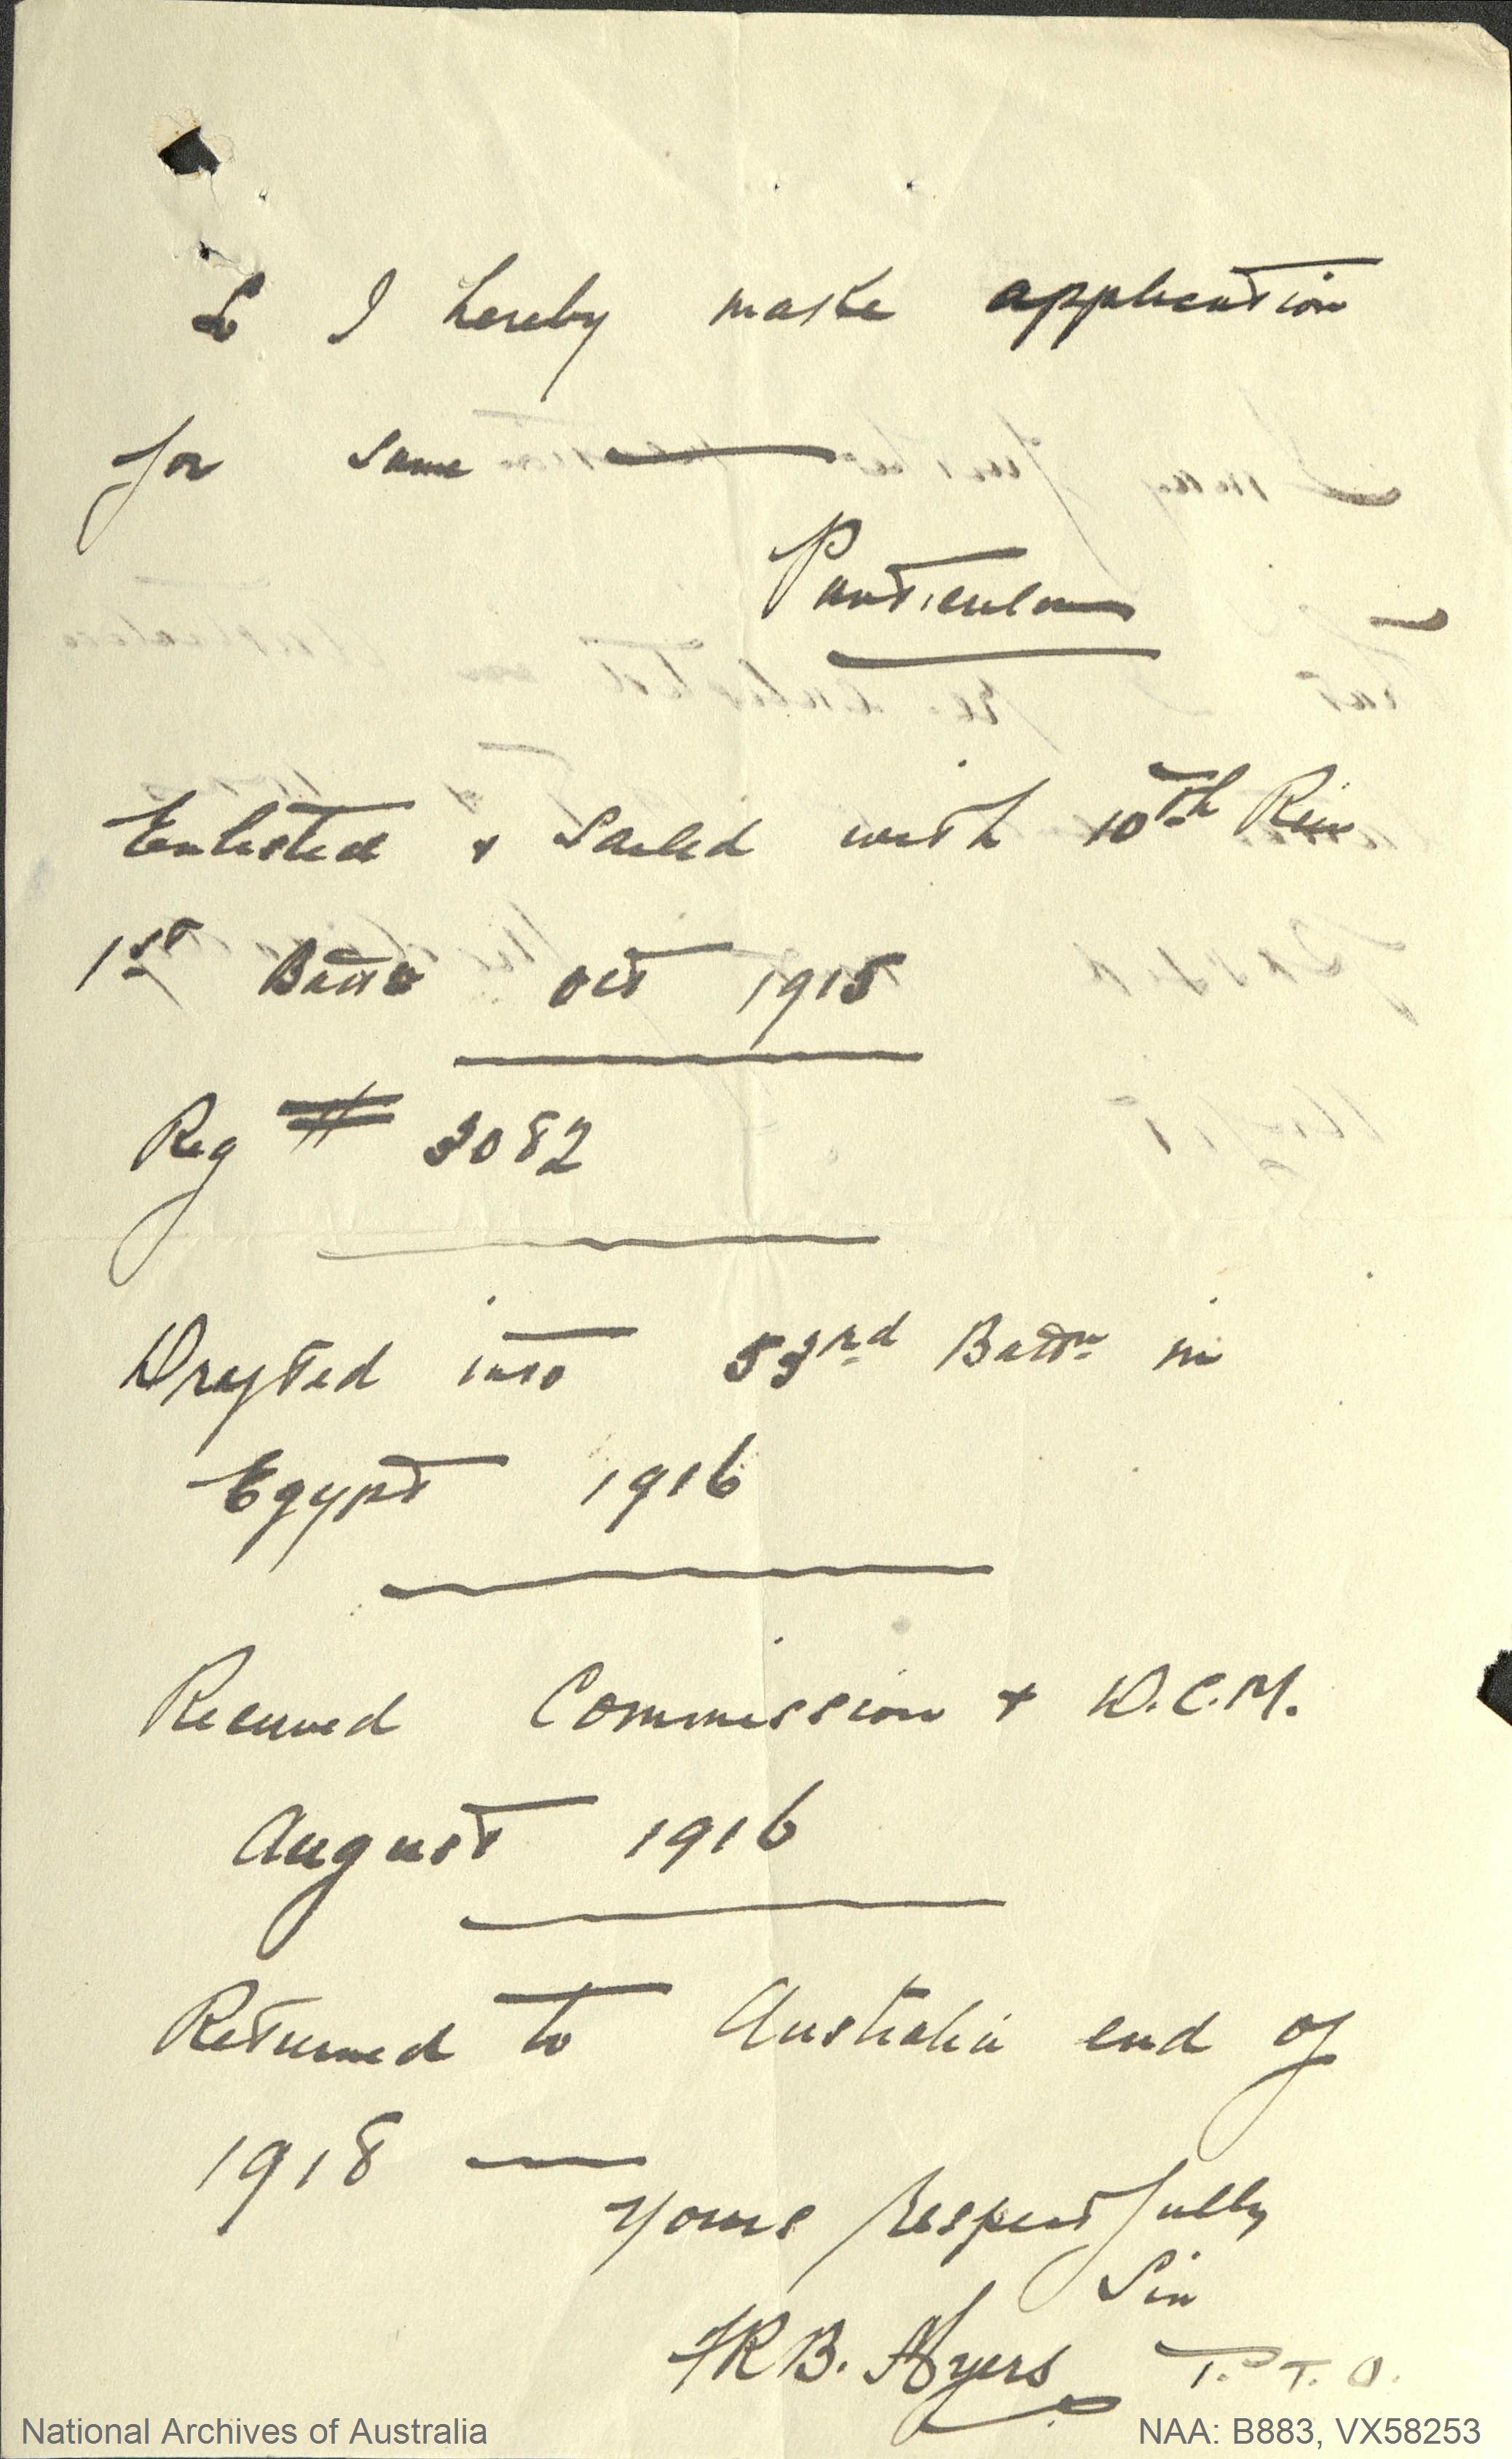 & I hereby make application
for same —
Particulars
Enlisted & Sailed with 10th Rein
1st Battn Oct 1915
Reg # 3082
Drafted into 53rd Battn in
Egypt 1916
Received Commission & D.C.M.
August 1916
Returned to Australia end of
1918 —
Yours Respectfully
Sir
R B. Ayers P.T.O.
National Archives of Australia
NAA: B883, VX58253